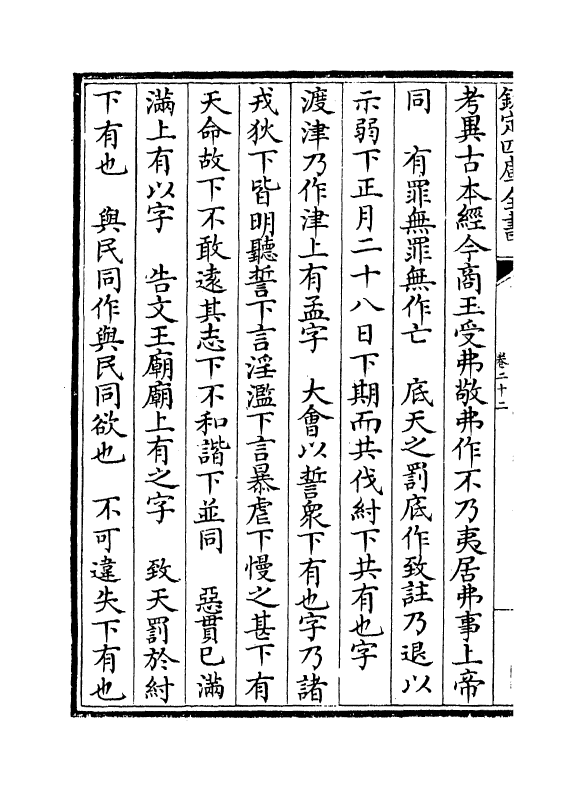 欽定四庫全書
卷二十二
考異古本經今商王受弗敬弗作不乃夷居弗事上帝
同　有罪無罪無作亡　底天之罰底作致註乃退以
示弱下正月二十八日下期而共伐紂下共有也字
渡津乃作津上有孟字　大會以誓衆下有也字乃諸
戎狄下皆明聽誓下言淫濫下言暴虐下慢之甚下有
天命故下不敢遠其志下不和諧下並同　惡貫已滿
滿上有以字　告文王廟廟上有之字　致天罰於紂
下有也　與民同作與民同欲也　不可違失下有也